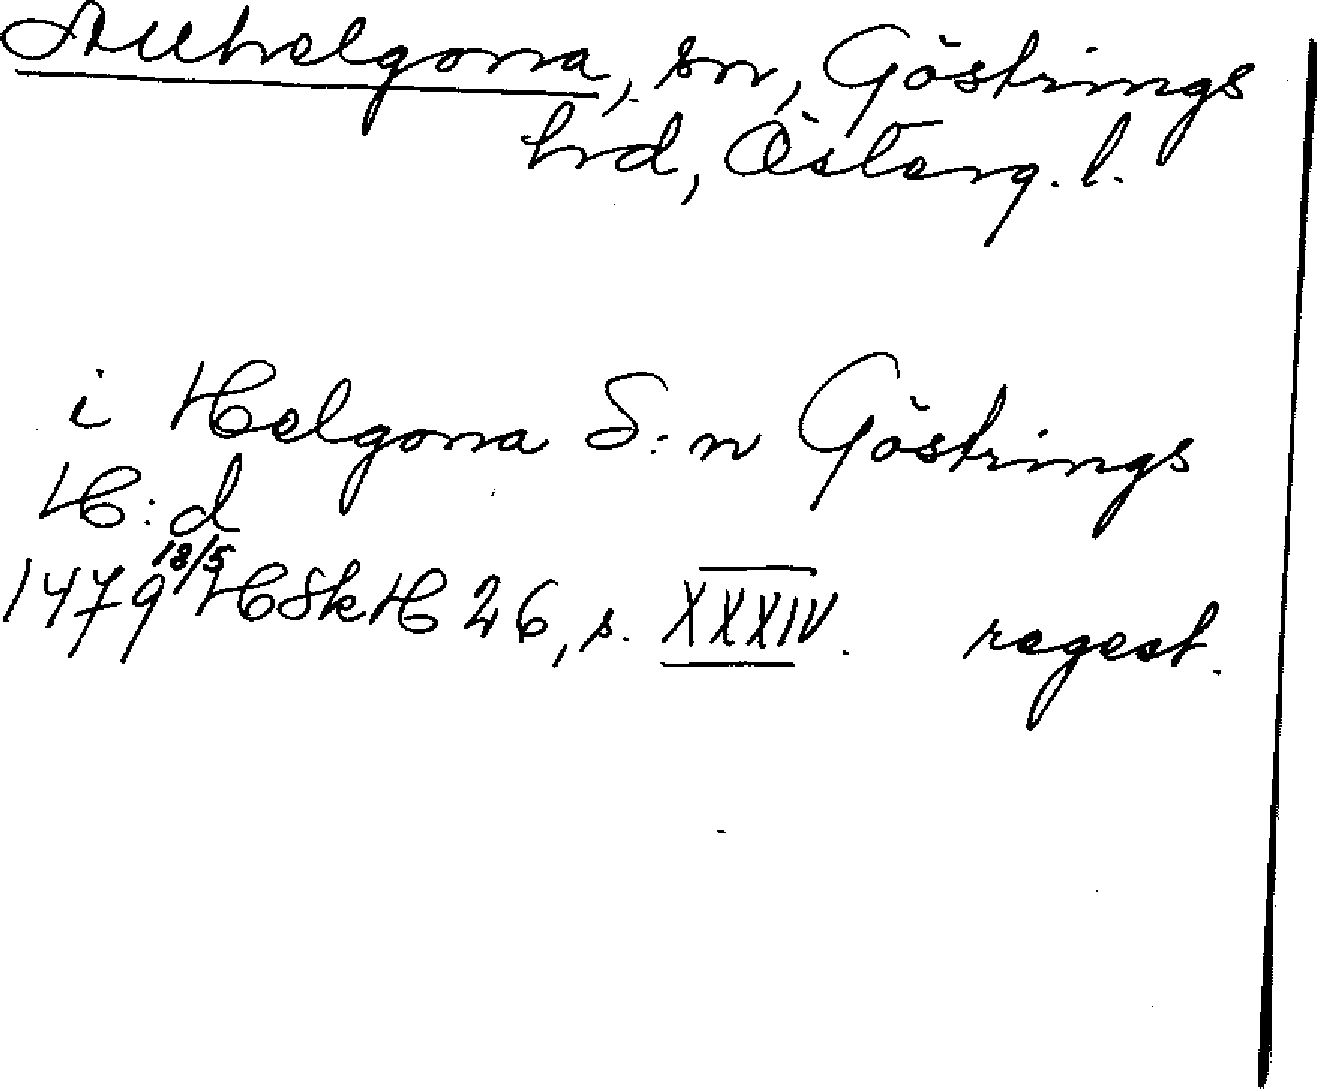 Allhelgona, sn, Göstrings
hrd, Österg. l.
i Helgona S:n Göstrings
H:d
1479 18/5 HSkH 26, s. XXXIV. regest.